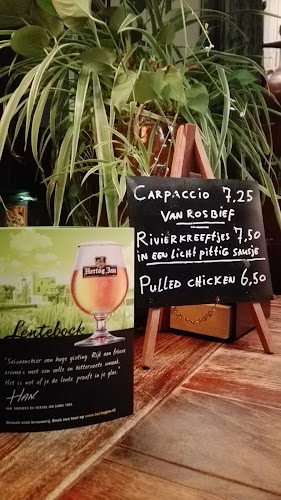 CARPACCIO 7.25
VAN ROSBIEF
RIVIERKREEFTJES 7,50
IN EEN LICHT PITTIG SAUSJE
PULLED CHICKEN 6,50
Hertog Jan
Lentebock
"Seizoensbier van hoge gisting. Rijk aan frisse
aroma's met een volle en bitterzoete smaak.
Het is net of je de lente proeft in je glas."
HAN